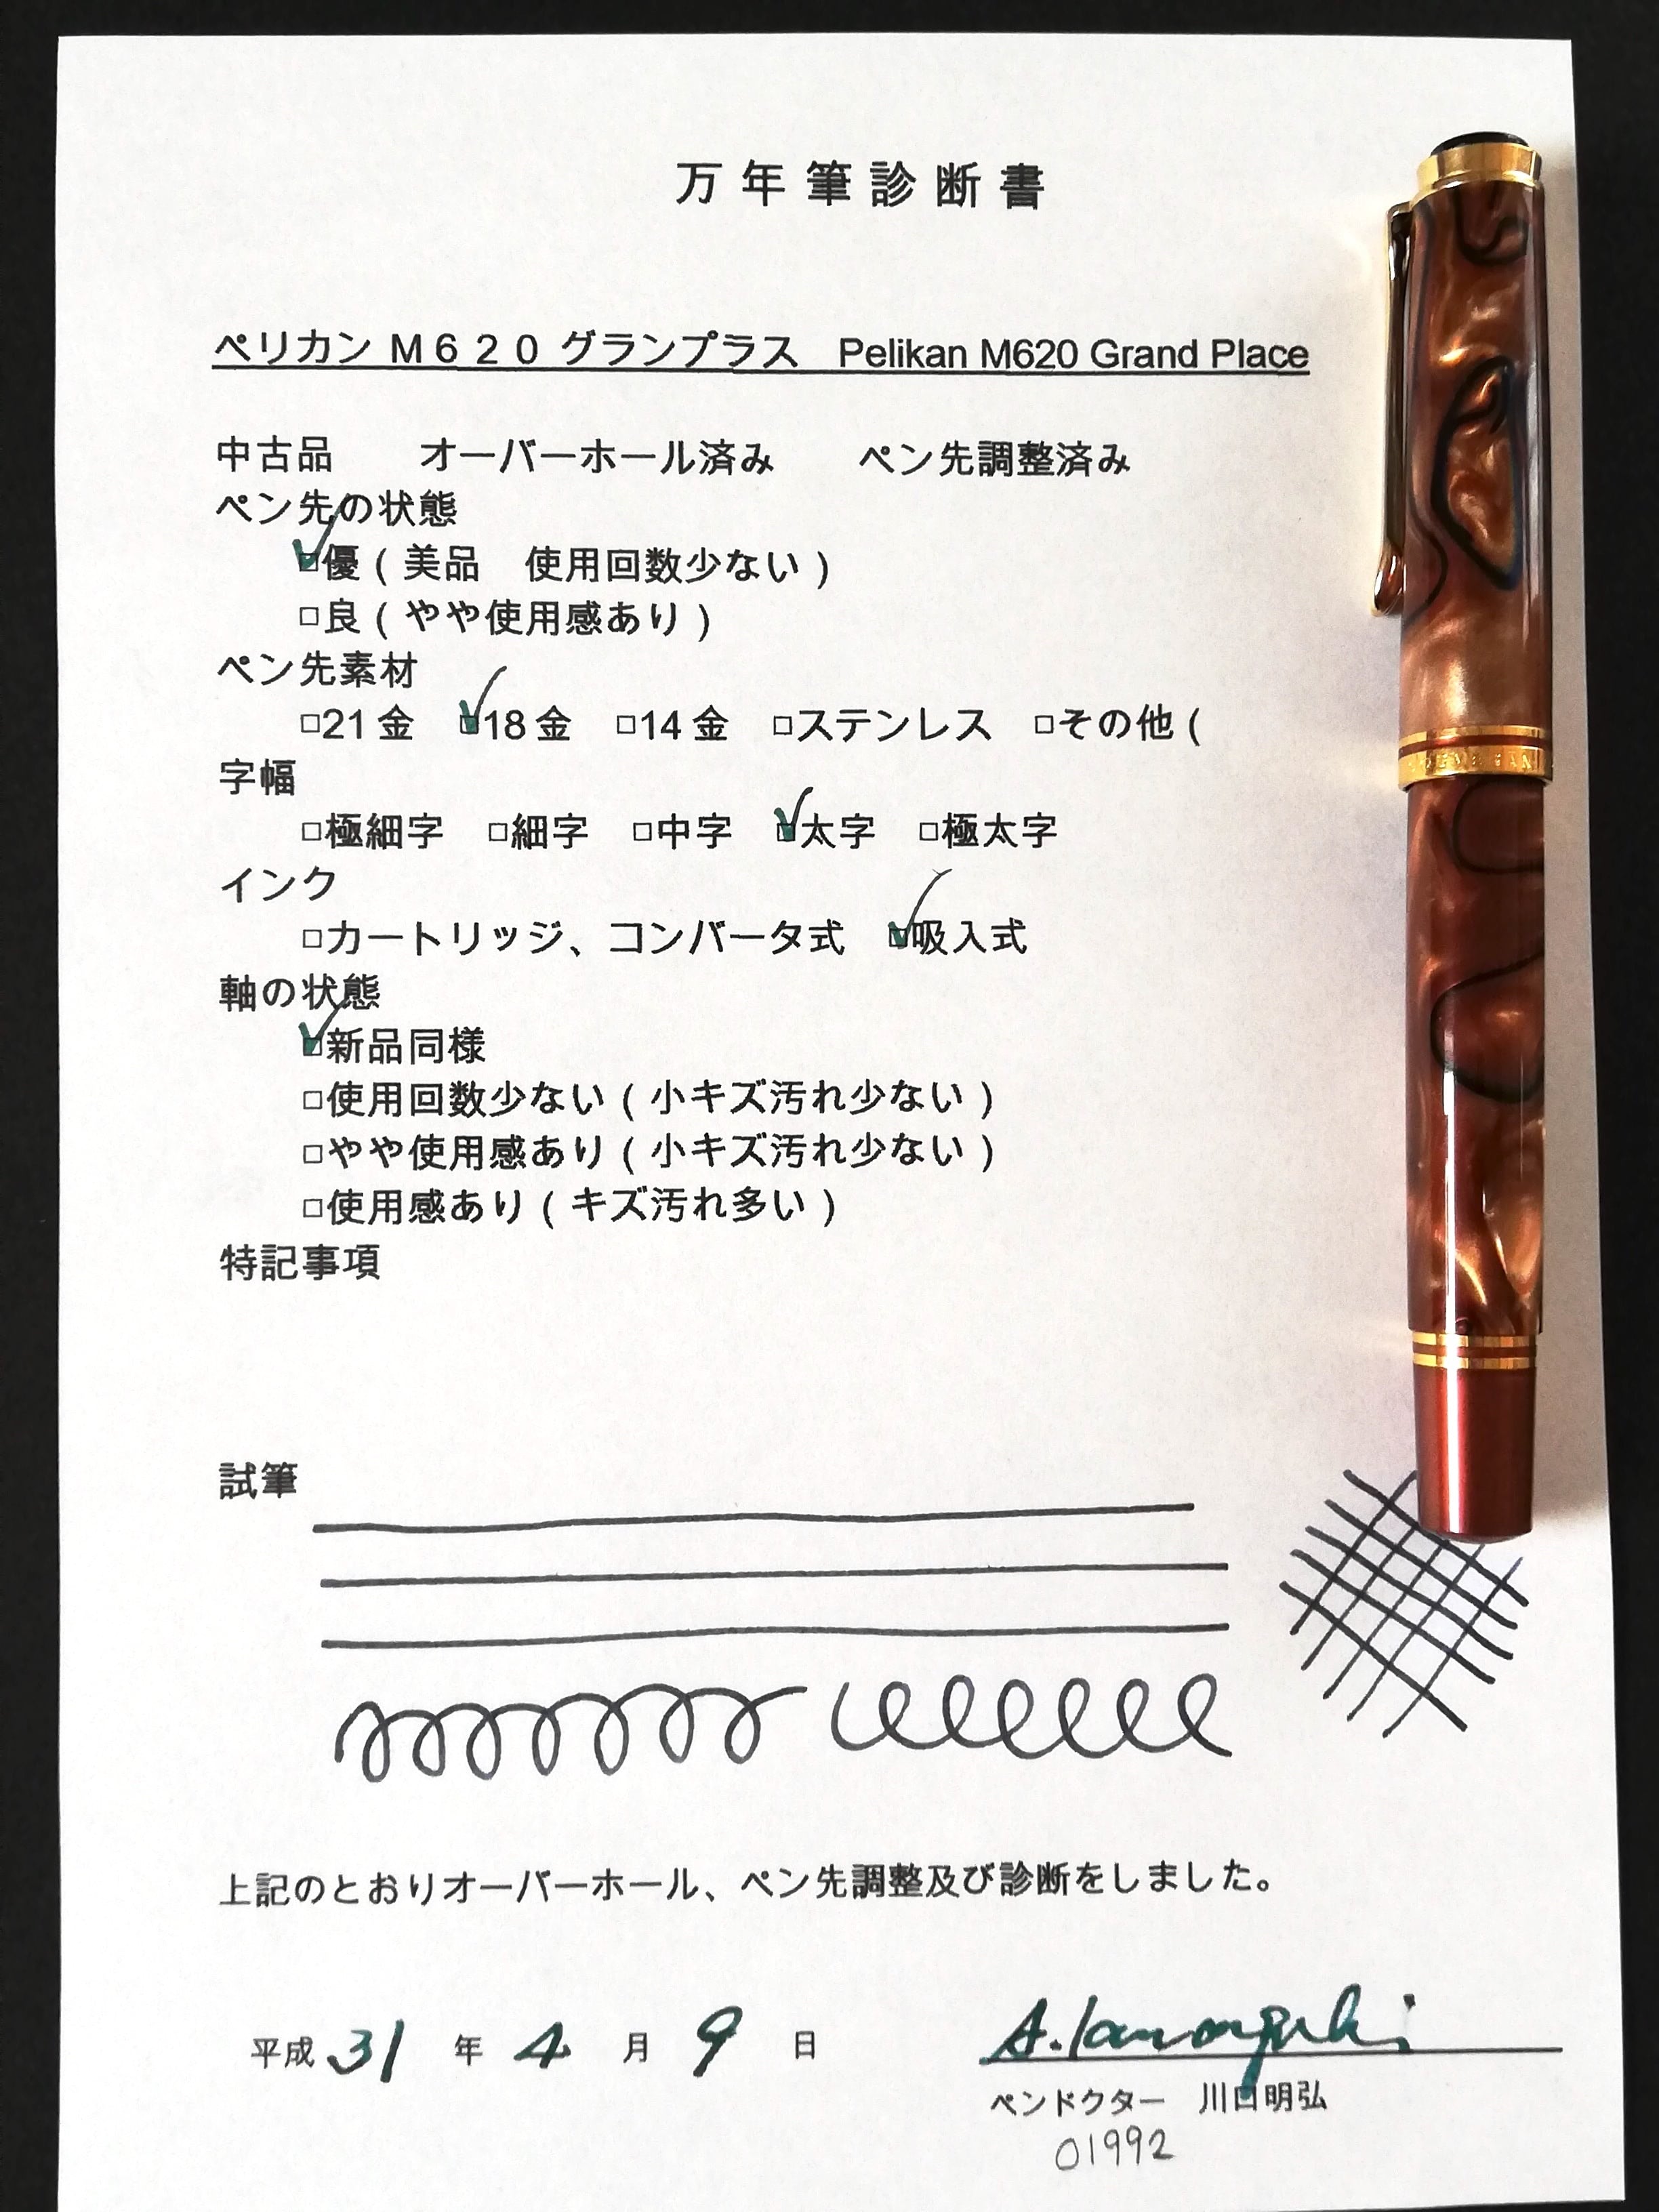 万年筆診断書
ペリカン M620 グランプラス Pelikan M620 Grand Place
中古品 オーバーホール済み ペン先調整済み
ペン先の状態
☑優(美品 使用回数少ない)
□良(やや使用感あり)
ペン先素材
□21金 ☑18金 □14金 □ステンレス □その他(
字幅
□極細字 □細字 □中字 ☑太字 □極太字
インク
□カートリッジ、コンバータ式 ☑吸入式
軸の状態
☑新品同様
□使用回数少ない(小キズ汚れ少ない)
□やや使用感あり(小キズ汚れ少ない)
□使用感あり(キズ汚れ多い)
特記事項
試筆
上記のとおりオーバーホール、ペン先調整及び診断をしました。
平成 31 年 4 月 9 日
A. Kawaguchi
ペンドクター 川口明弘
01992